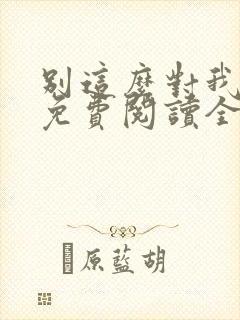 別這麼對我
免費閱讀全
原藍胡